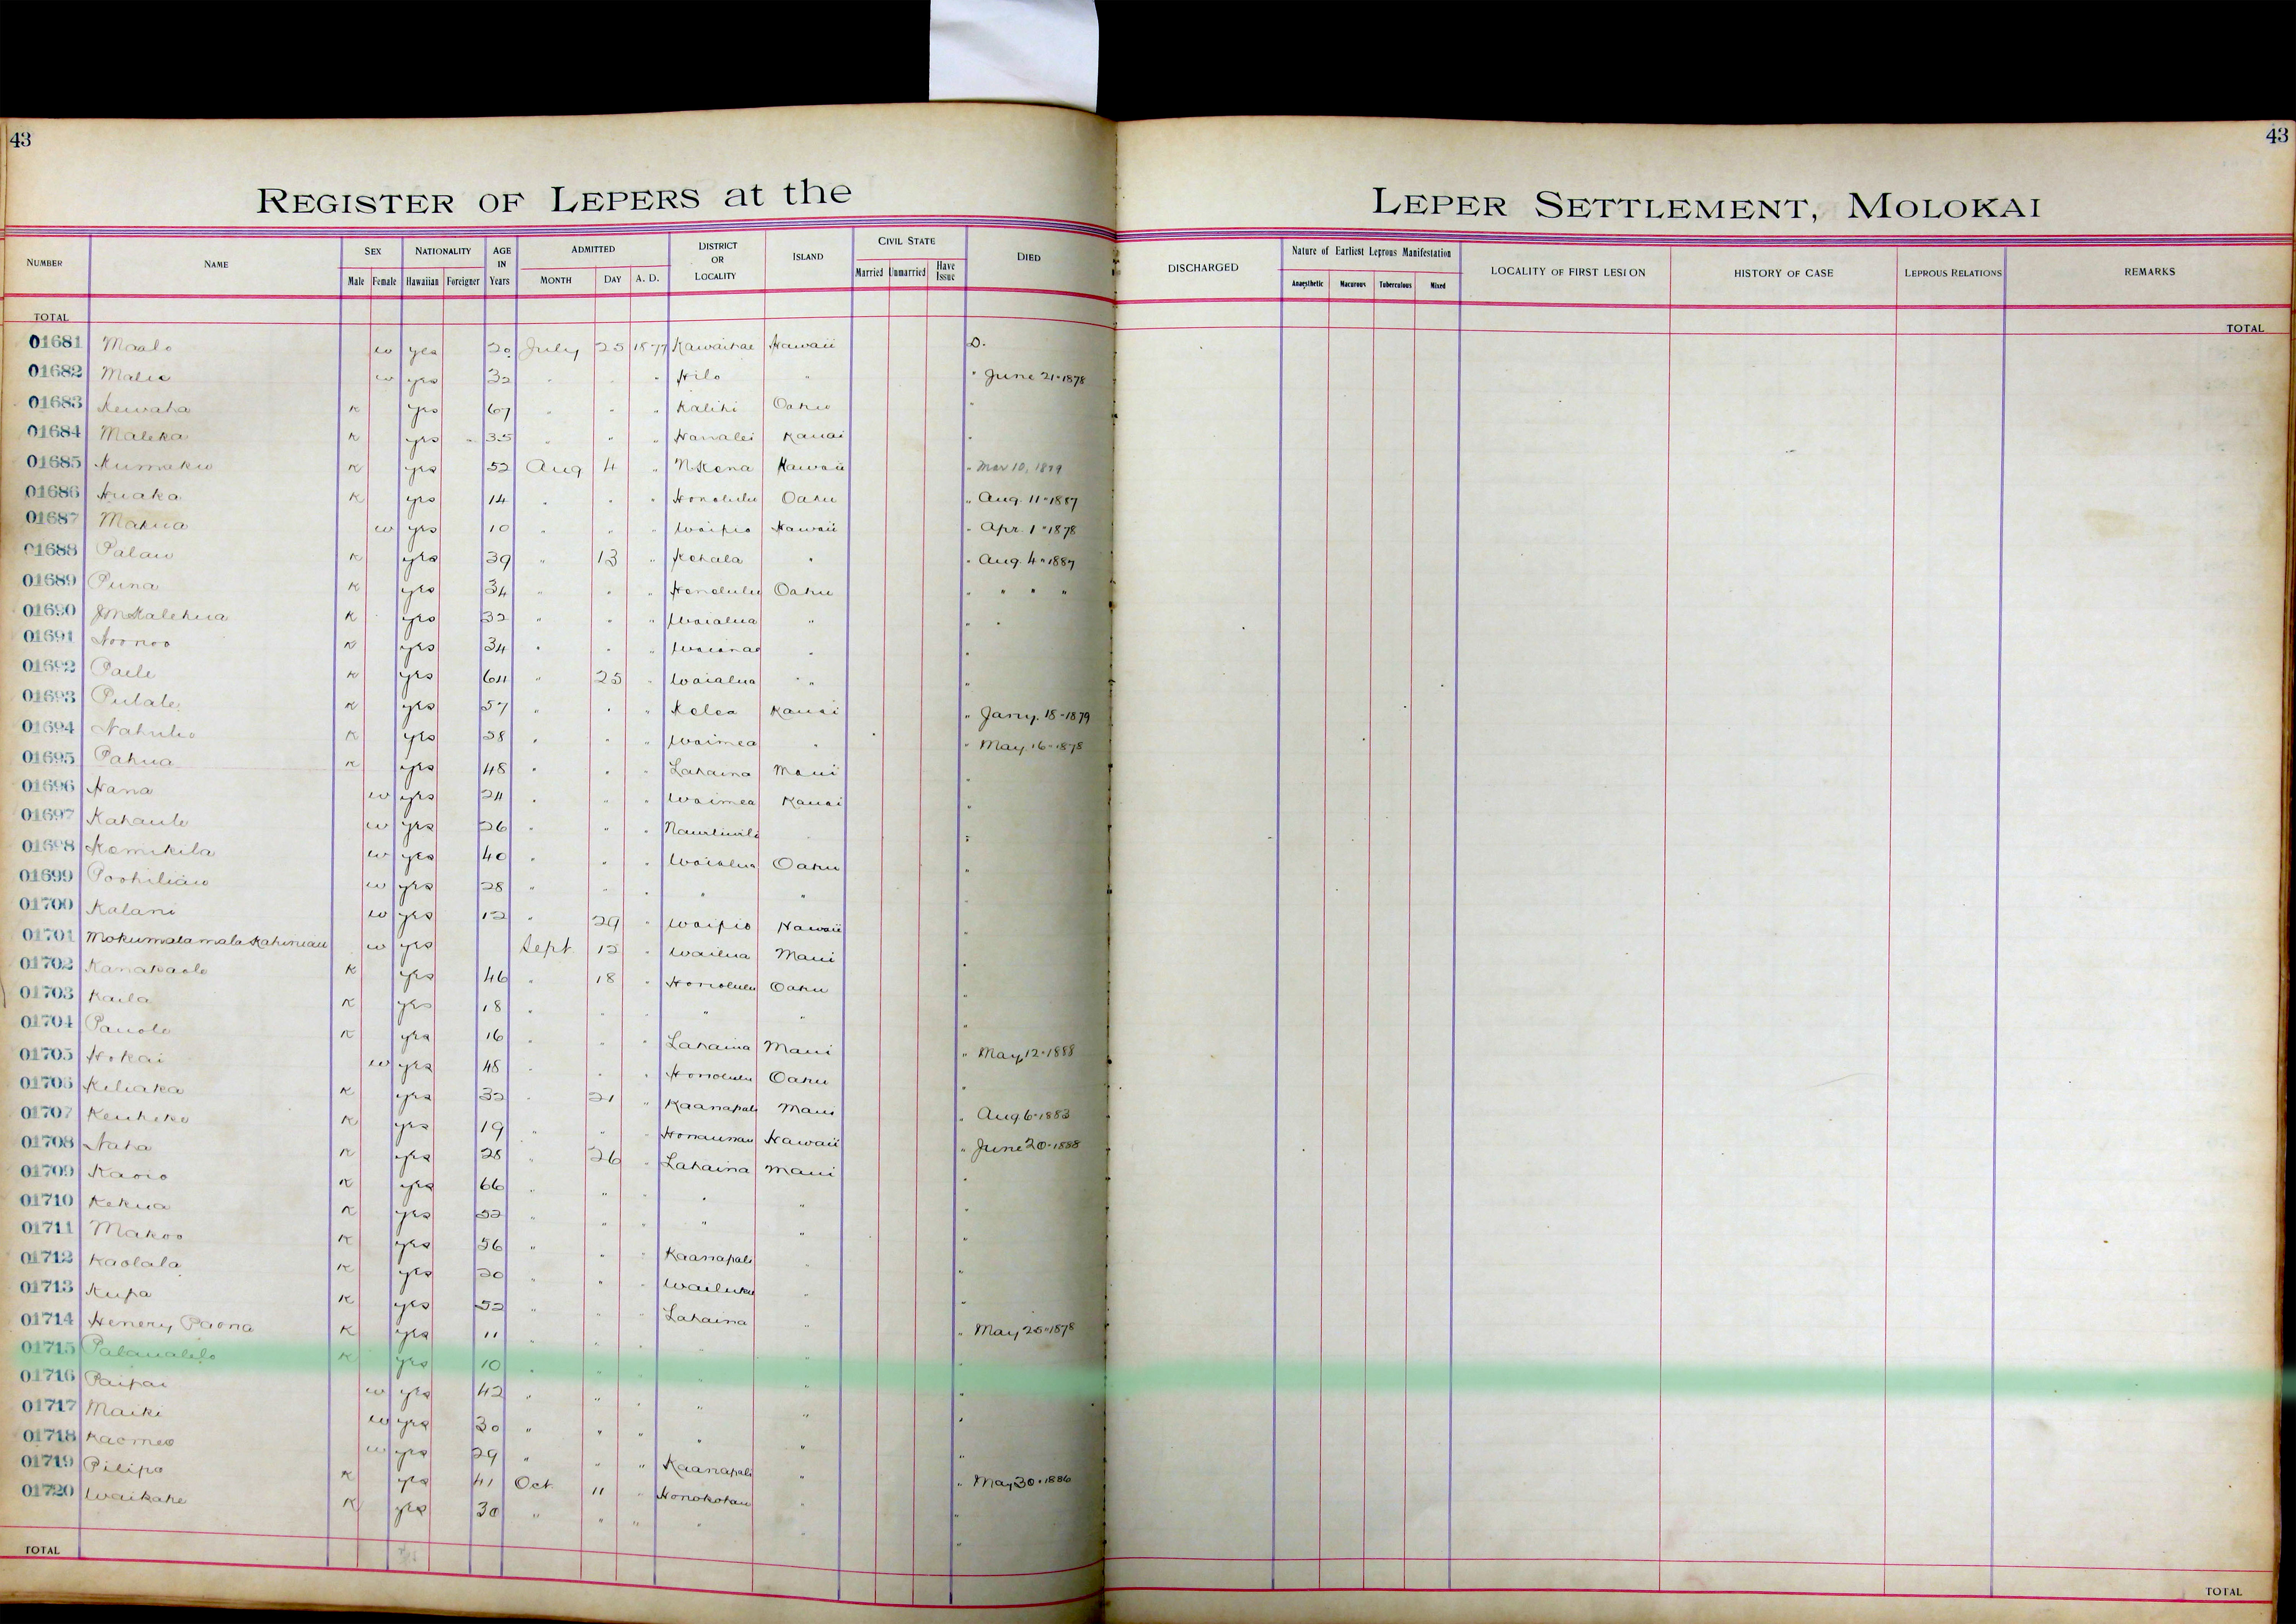 43
43
REGISTER OF LEPERS at the
LEPER SETTLEMENT, MOLOKAI
NUMBER NAME SEX NATIONALITY AGE IN Years ADMITTED DISTRICT OR LOCALITY ISLAND CIVIL STATE DIED
Male Female Hawaiian Foreigner MONTH DAY A. D. Married Unmarried Have Issue
DISCHARGED Nature of Earliest Leprous Manifestation LOCALITY OF FIRST LESION HISTORY OF CASE LEPROUS RELATIONS REMARKS
Anaesthetic Macurous Tuberculous Mixed
TOTAL TOTAL
01681 Maalo w yes 20 July 25 1877 Kawaihae Hawaii D.
01682 Malie w yes 32 " " " Hilo " " June 21-1878
01683 Kewaha K yes 67 " " " Kalihi Oahu "
01684 Maleka K yes 35 " " " Hanalei Kauai "
01685 Kumaku K yes 52 Aug 4 " N Kona Hawaii " Mar 10, 1879
01686 Huaka K yes 14 " " " Honolulu Oahu " Aug. 11-1887
01687 Makua w yes 10 " " " Waipio Hawaii " Apr. 1-1878
01688 Palau K yes 39 " 13 " Kohala " " Aug. 4-1887
01689 Puna K yes 34 " " " Honolulu Oahu " " " "
01690 J M Kalehua K yes 32 " " " Waialua " " "
01691 Noonoo K yes 34 " " " Waianae " "
01692 Paele K yes 64 " 25 " Waialua " " "
01693 Pulale K yes 57 " " " Kolea Kauai " Jany. 18-1879
01694 Nahuho K yes 28 " " " Waimea " " May. 16-1878
01695 Pahua K yes 48 " " " Lahaina Maui "
01696 Hana w yes 24 " " " Waimea Kauai "
01697 Kahaule w yes 26 " " " Nawiliwili "
01698 Kamikila w yes 40 " " " Waialua Oahu "
01699 Poohiliau w yes 28 " " " " "
01700 Kalani w yes 12 " 29 " Waipio Hawaii "
01701 Mokumalamala Kahiniau w yes Sept 12 " Wailua Maui "
01702 Kanakaole K yes 46 " 18 " Honolulu Oahu "
01703 Kaila K yes 18 " " " " " "
01704 Pauole K yes 16 " " " Lahaina Maui " May 12-1888
01705 Hokai w yes 48 " " " Honolulu Oahu "
01706 Keliaka K yes 32 " 21 " Kaanapali Maui " Aug 6-1883
01707 Keuheke K yes 19 " " " Honaunau Hawaii " June 20-1888
01708 Naha K yes 28 " 26 " Lahaina Maui "
01709 Kaoio K yes 66 " " " " " "
01710 Kekua K yes 52 " " " " " "
01711 Makoo K yes 56 " " " Kaanapali " "
01712 Kaolala K yes 20 " " " Wailuku " "
01713 Kupa K yes 52 " " " Lahaina " " May 25-1878
01714 Henery Paona K yes 11 " " " " " "
01715 Palaualelo K yes 10 " " " " " "
01716 Paipai w yes 42 " " " " " "
01717 Maiki w yes 30 " " " " " "
01718 Kaomeo w yes 29 " " " Kaanapali " " May 30-1886
01719 Pilipo K yes 41 Oct 11 " Honokohau " "
01720 Waikahe K yes 30 " " " " " "
TOTAL TOTAL